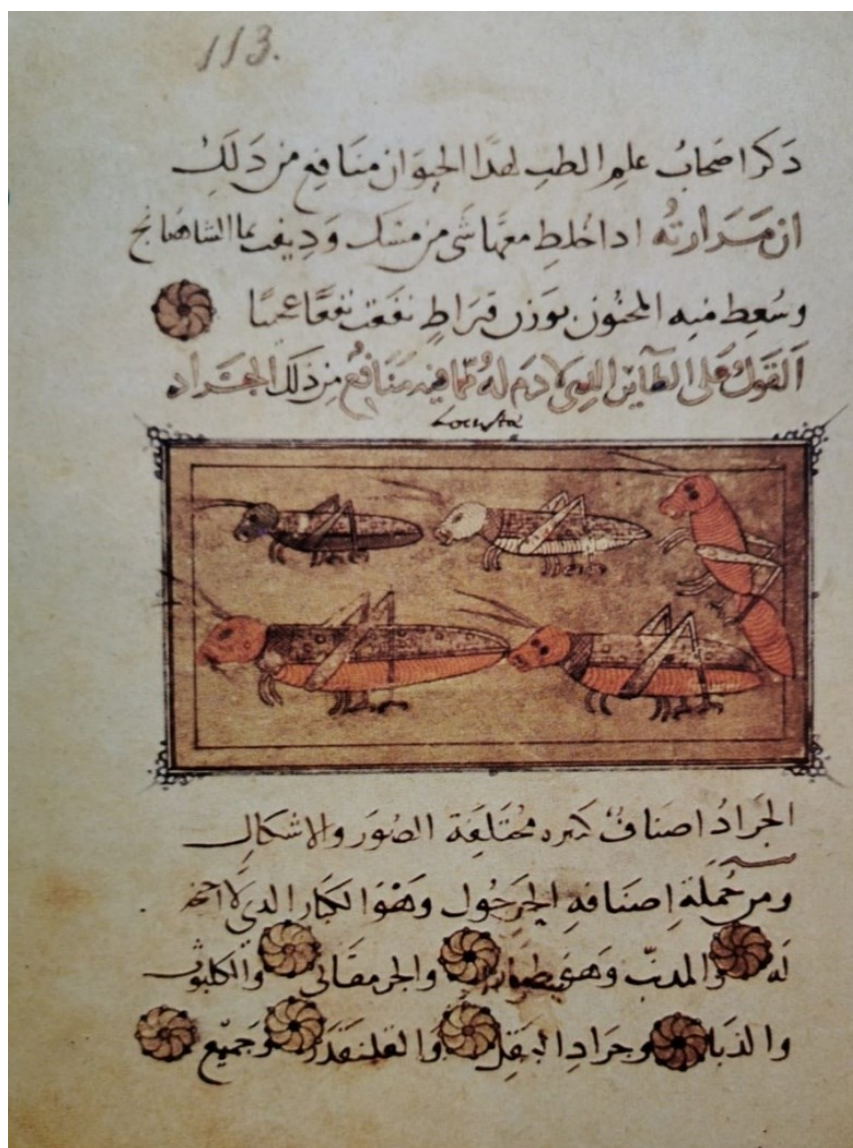 113.
ذكر اصحابُ علم الطب لهذا الحيوان منافع من ذلك
ان مَرَارتُه اذا خُلط معها شى من مسك وَدِيف بما الشاهبانج
وسُعِط منه المجنون بوَزن قيرَاطٍ نفعَت نفعًا عجيبًا
القولُ على الطاير الذى لا دم لهُ مما فيه منافعُ من ذلك الجراد
Locusta
الجَرادُ اصنافٌ كثيره مختلفة الصُوَر والاشكال
ومن جُملة اصنافهِ الجرجُول وهْوَ الكبار الذي لا اجنحه
لَه والمدبّ وهى والجرمقانى
والدبا وجراد البقل وجميع